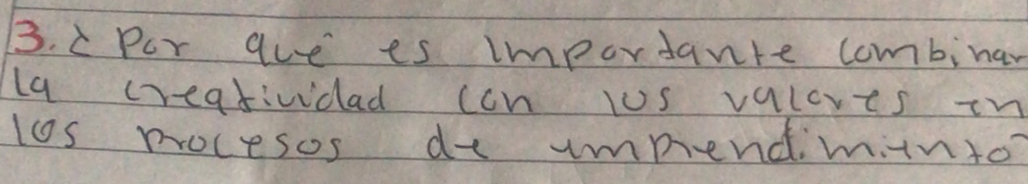 3. ¿ Por qué es importante combinar
la creatividad con los valores en
los procesos de emprendimiento?